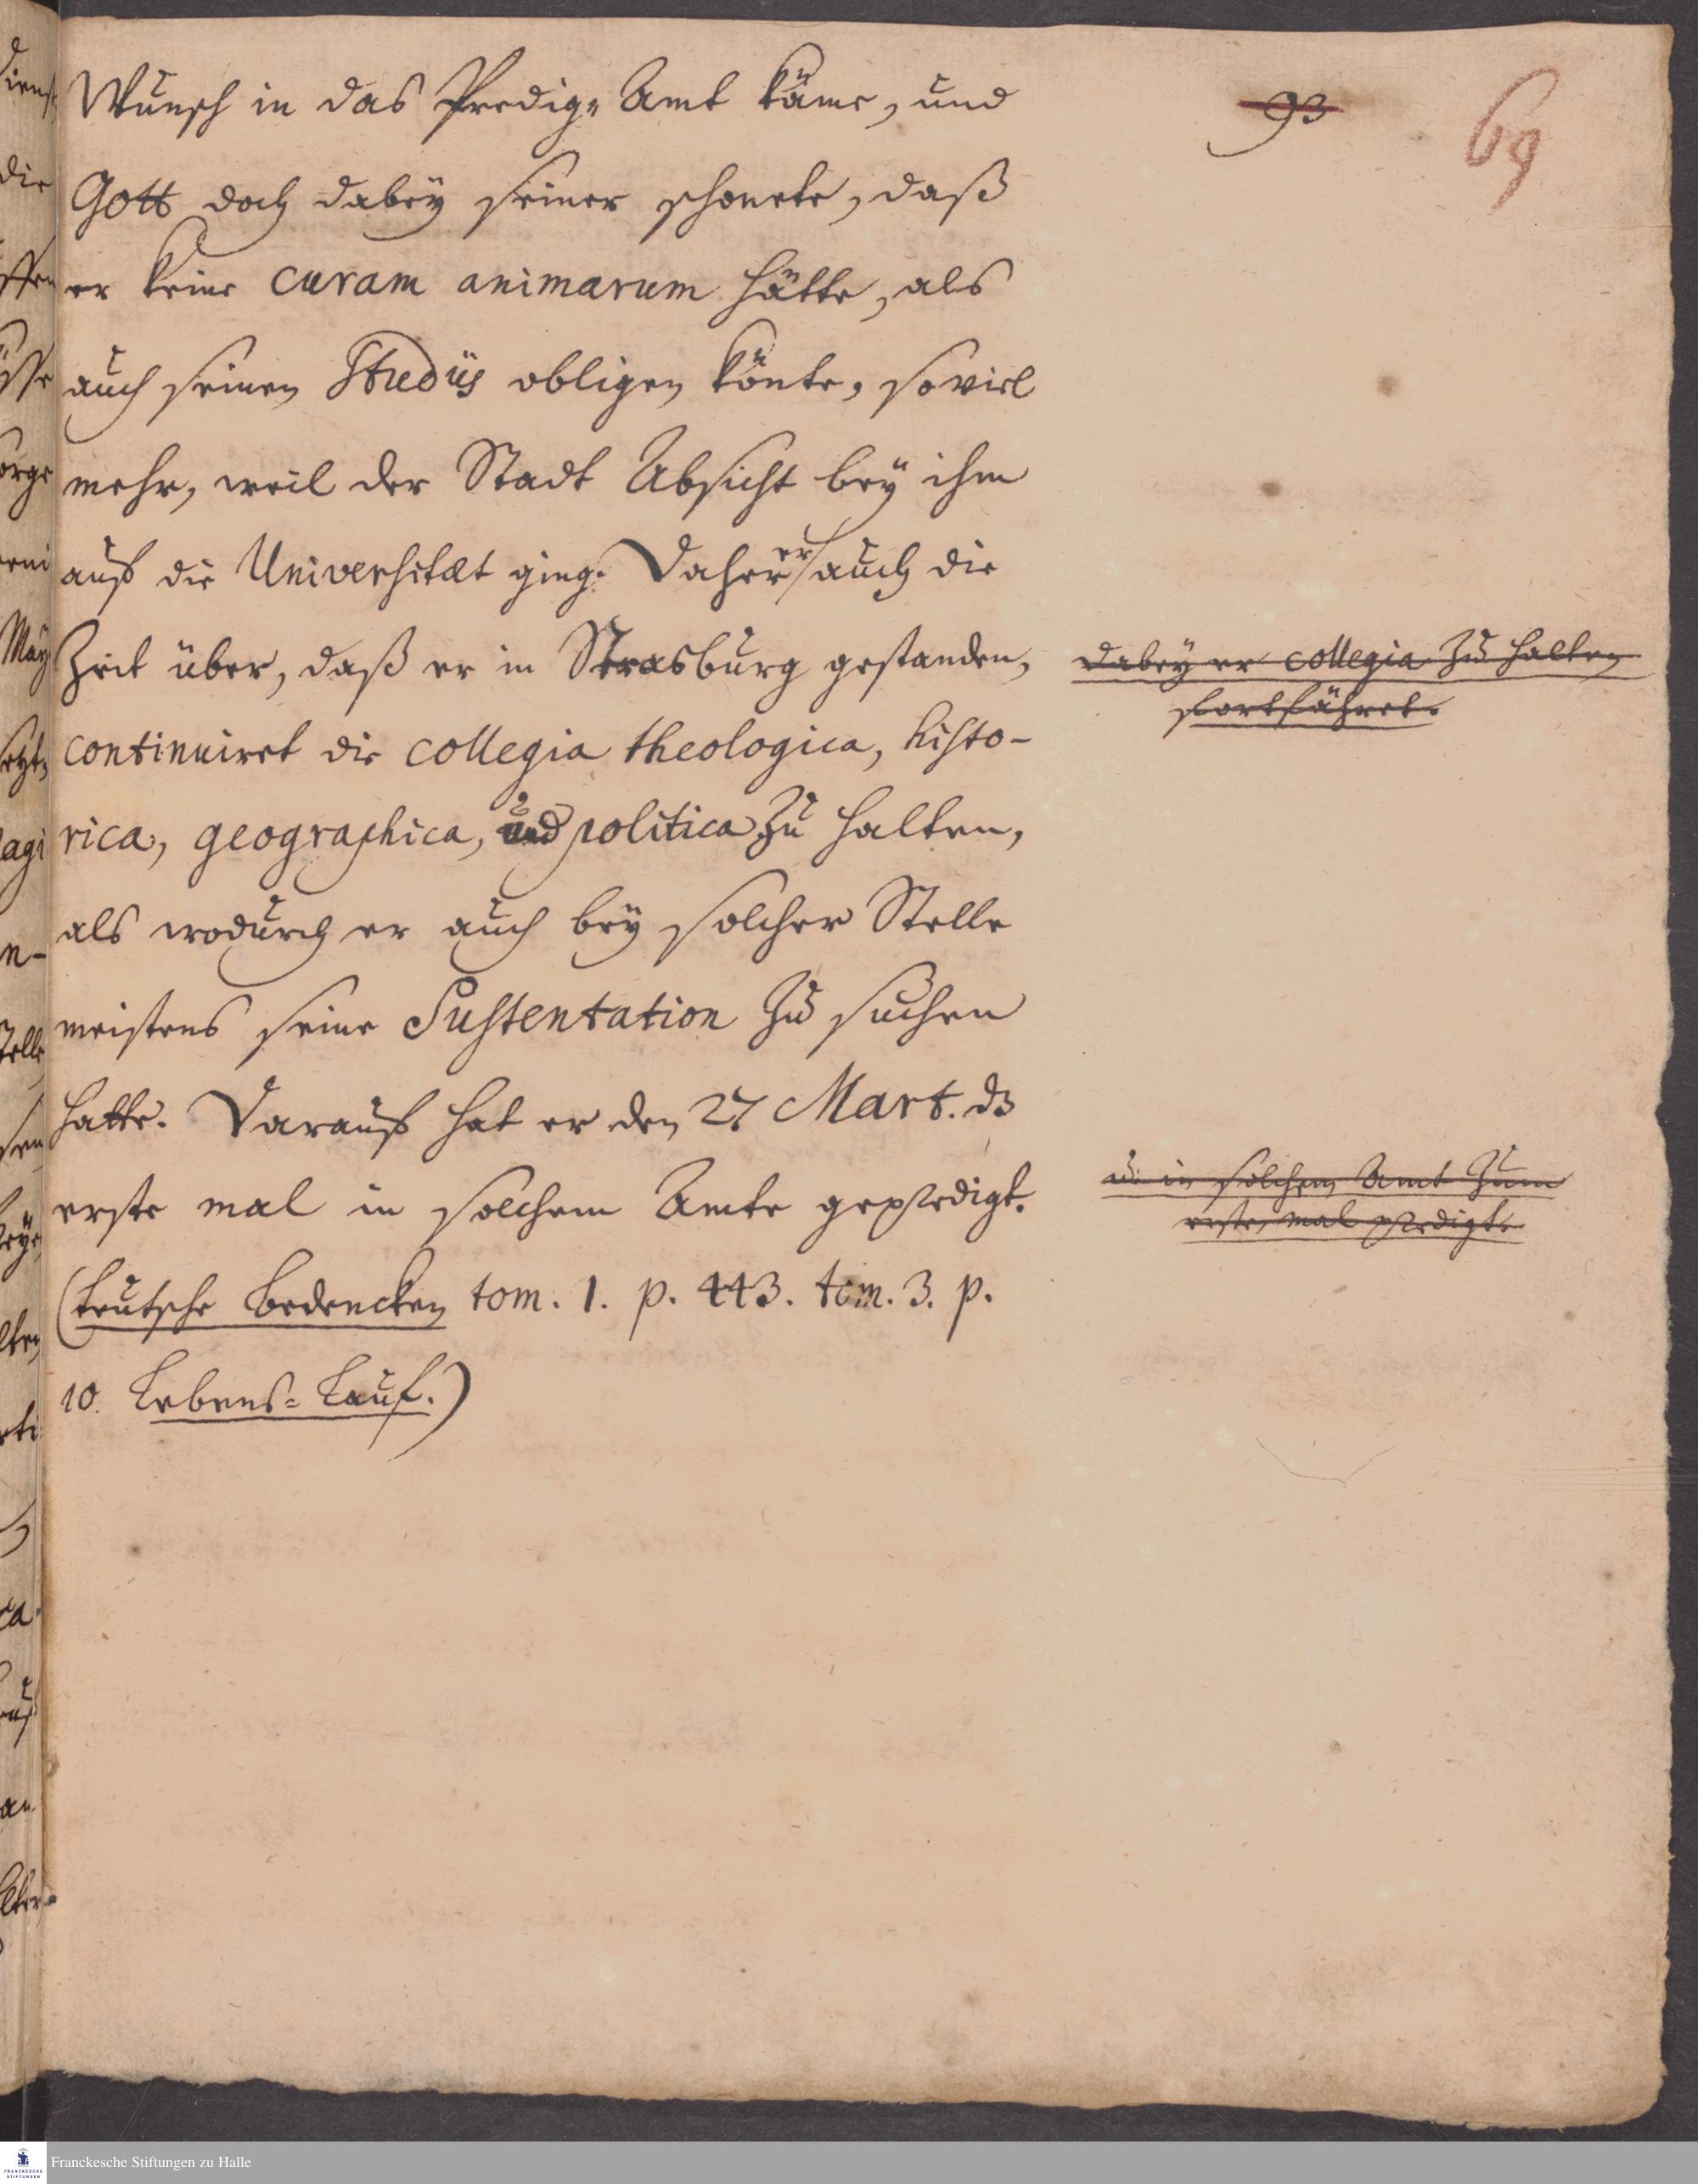 93
69
Wunsch in das Predig-Amt käme, und
Gott doch dabeÿ seiner schonete, daß
er keine curam animarum hätte, als
auch seinen Studiis obligen könte, so viel
mehr, weil der Stadt Absicht beÿ ihm
auf die Universitæt ging. Daher er auch die
Zeit über, daß er in Strasburg gestanden,
continuiret die collegia theologica, histo-
rica, geographica, und politica zu halten,
als wodurch er auch beÿ solcher Stelle
meistens seine Sustentation zu suchen
hatte. Darauf hat er den 27 Mart. dz
erste mal in solchem Amte geprediget.
(teutsche Bedencken tom. 1. p. 443. tom. 3. p.
10. Lebens-Lauf.)
dabeÿ er collegia zu halten
fortfähret.
u. in solchem Amt zum
ersten mal prediget.
Franckesche Stiftungen zu Halle